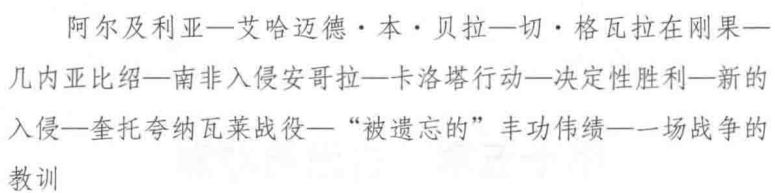 阿尔及利亚—艾哈迈德·本·贝拉—切·格瓦拉在刚果—
几内亚比绍—南非入侵安哥拉—卡洛塔行动—决定性胜利—新的
入侵—奎托夸纳瓦莱战役—“被遗忘的”丰功伟绩—一场战争的
教训